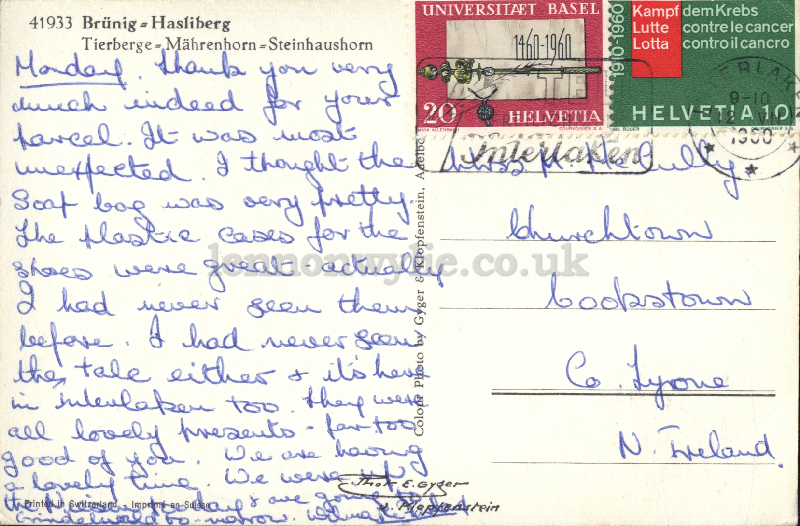 41933 Brünig = Hasliberg
Tierberge = Mährenhorn = Steinhaushorn
Monday. Thank you very
much indeed for your
parcel. It was most
unexpected. I thought the
Soap bag was very pretty.
The plastic cases for the
shoes were great actually
I had never seen them
before. I had never seen
the talc either & it's here
in Interlaken too. They were
all lovely presents - far too
good of you. We are having
a lovely time. We were up
the today & are going to
Grindelwald to-morrow.
Printed in Switzerland - Imprimé en Suisse
Colour Photo by Gyger & Klopfenstein, Adelbo
Phot. E. Gyger
u. Klopfenstein
UNIVERSITÆT BASEL
1460-1960
20 HELVETIA
1910-1960
Kampf dem Krebs
Lutte contre le cancer
Lotta contro il cancro
HELVETIA 10
INTERLAKEN
9-10
1960
Interlaken
Miss M. McCully
Churchtown
Cookstown
Co. Tyrone
N. Ireland.
lennonwylie.co.uk